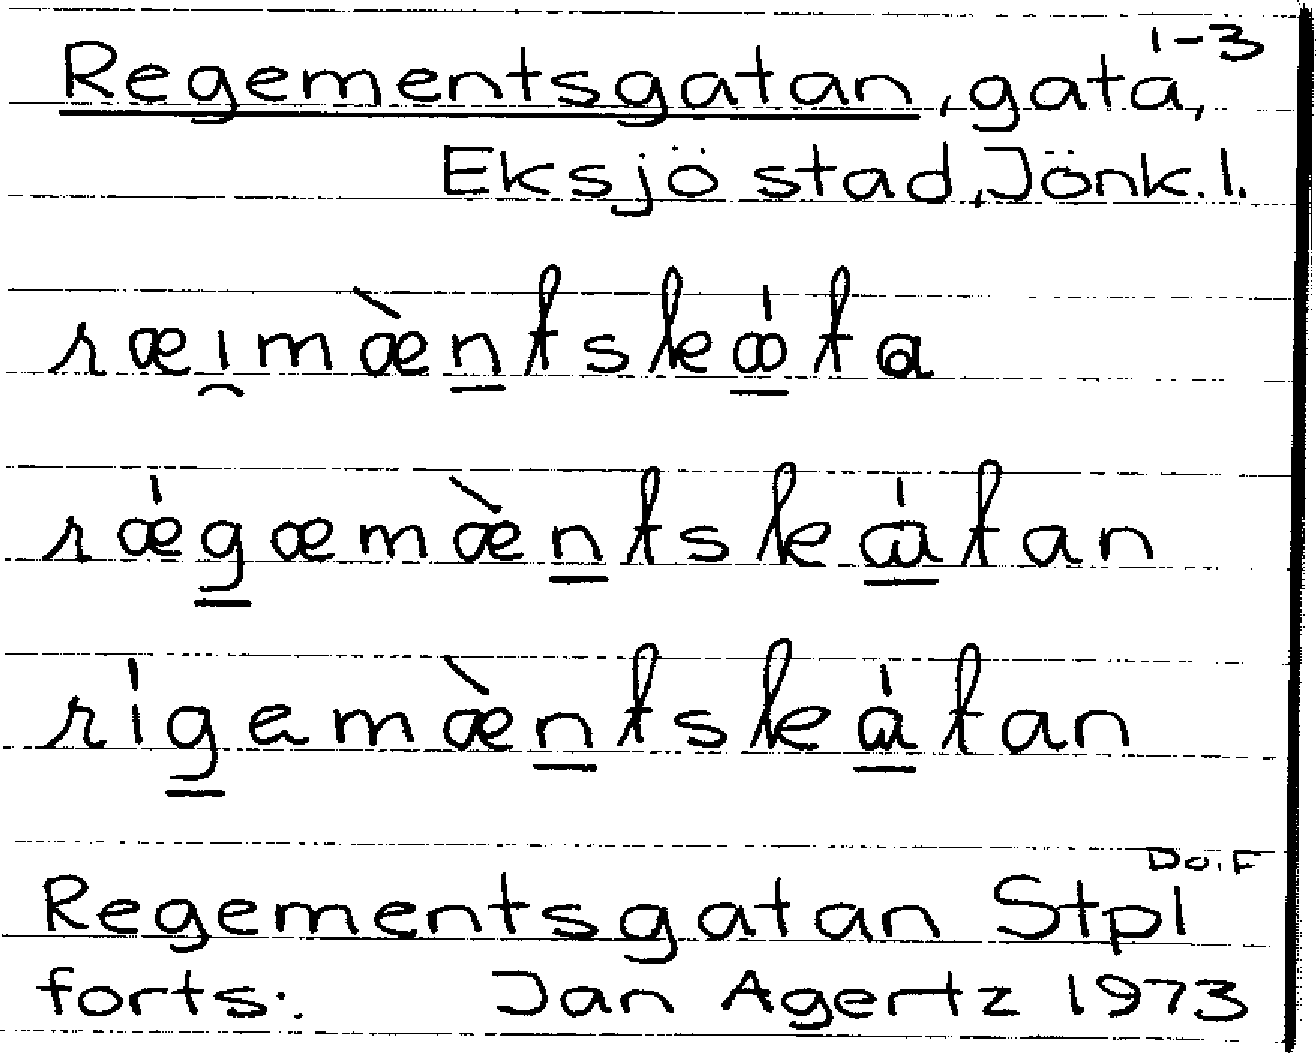 Regementsgatan, gata, 1-3
Eksjö stad, Jönk. l.
ræi̯mæ̀ntskǻta
rǽgæmæ̀ntskátan
rígemæ̀ntskátan
Regementsgatan Stpl Do.F
forts. Jan Agertz 1973